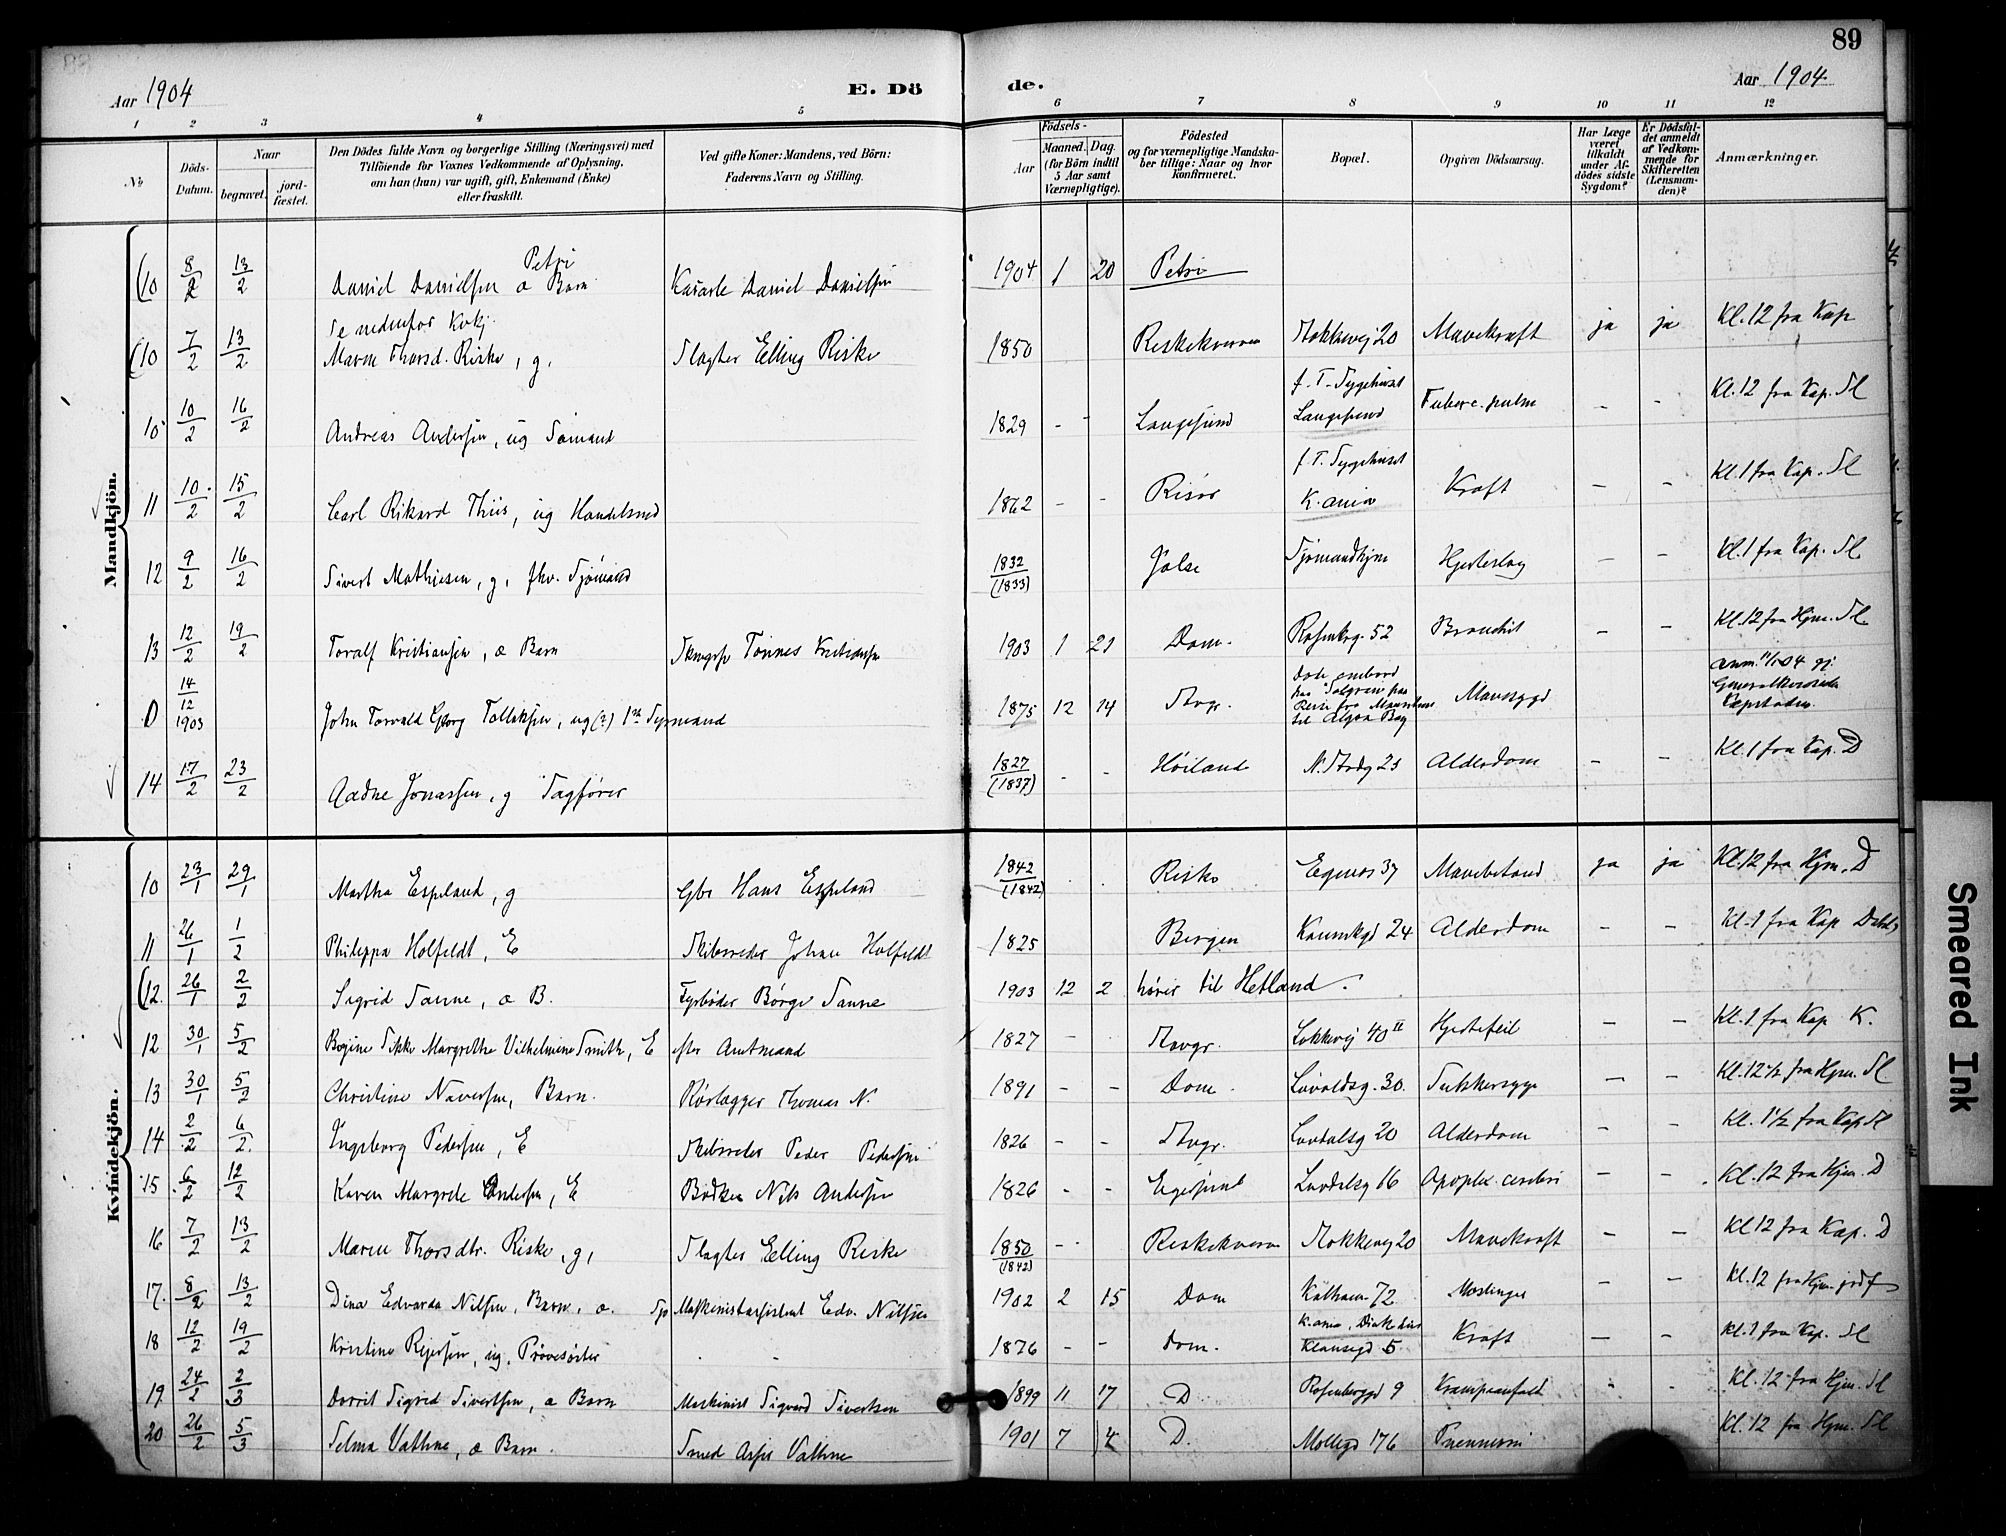 89
Aar 1904
E. Dö
de.
Aar 1904
1 2 3 4 5 6 7 8 9 10 11 12
No
Döds-
Datum.
Naar
begravet.
jord-
fæstet.
Den Dödes fulde Navn og borgerlige Stilling (Næringsvei) med
Tilföiende for Voxnes Vedkommende af Oplysning,
om han (hun) var ugift, gift, Enkemand (Enke)
eller fraskilt.
Ved gifte Koner: Mandens, ved Börn:
Faderens Navn og Stilling.
Födsels-
Aar
Maaned. Dag.
(for Börn indtil
5 Aar samt
Værnepligtige).
Födested
og for værnepligtige Mandska-
ber tillige: Naar og hvor
konfirmeret.
Bopæl.
Opgiven Dödsaarsag.
Har Læge
været
tilkaldt
under Af-
dödes sidste
Sygdom?
Er Dödsfal-
det anmeldt
af Vedkom-
mende for
Skifteretten
(Lensman-
den)?
Anmærkninger.
Mandkjön.
Petri
(10 8/2 13/2 Daniel Danielsen æ Barn Daniel Danielsen 1904 1 20 Petri
Se nedenfor Kvkj.
(10 7/2 13/2 Maren Thorsd. Riske, g. Slagter Elling Riske 1850 Riskekvernen Stokkevej 20 Mavekræft ja ja Kl. 12 fra Kap
10 10/2 16/2 Andreas Andersen, ug Sømand 1829 - - Langesund f. T. Sygehuset Langesund Tuberc. pulm - - Kl. 12 fra Kap. Sl
11 10/2 15/2 Carl Rikard Thiis, ug Handelsmd 1862 - - Risør f. T. Sygehuset K.ania Kræft - - Kl. 1 fra Kap. Sl
12 9/2 16/2 Sivert Mathiesen, g, fhv. Sjømand 1832 (1833) Jølse Sjømandshjem Hjerteslag - - Kl. 1 fra Kap. Sl
13 12/2 19/2 Toralf Kristiansen, æ Barn Tønnes Kristiansen 1903 1 21 Dom. Rosenbrg. 52 - - Kl. 12 fra Hjm. Sl
0 14/12 1903 John Torvald Georg Tollaksen, ug (?) 1ste Styrmand 1875 12 14 Stvgr. Døde ombord til Algoa Bay Mavesygd Kapstaden.
14 17/2 23/2 Aadne Jonassen, g Sagfører 1827 (1837) - - Høiland N. Strdg 23 Alderdom - - Kl. 1 fra Kap. D
Kvindekjön.
10 23/1 29/1 Martha Espeland, g Gbr Hans Espeland 1842 (1842) Riske Egenes 37 ja ja Kl. 12 fra Hjm. D
11 26/1 1/2 Philippa Holfeldt, E Skibsreder Johan Holfeldt 1825 Bergen 24 Alderdom - - Kl. 1 fra Kap
(12. 26/1 2/2 Sigrid Sanne, æ B. Fyrbøder Børge Sanne 1903 12 2 hører til Hetland.
12 30/1 5/2 Bogine Sikke Margrethe Vilhelmine Smith, E efter Amtmand 1827 - Stavgr. Løkkevej 40 II Hjertefeil - - Kl. 1 fra Kap K.
13 30/1 5/2 Christine Naversen, Barn. Rørlægger Thomas N. 1891 - - Dom. Løvoldsg. 30. Sukkersyge - - Kl. 12 1/2 fra Hjm. Sl
14 2/2 6/2 Ingeborg Pedersen, E Skibsreder Peder Pedersen 1826 - - Stvgr. Løvdalsg 20 Alderdom - - Kl. 1 1/2 fra Kap Sl
15 6/2 12/2 Karen Margrete Andersen, E Bødker Nils Andersen 1826 - - Egersund Løvdalsg 66 Apoplex. cerebri - - Kl. 12 fra Hjm. D
16 7/2 13/2 Maren Thorsdtr. Riske, g, Slagter Elling Riske 1850 (1842) - - Riskekvern Stokkevej 20 Mavekræft - - Kl 12 fra Kap. D
17. 8/2 13/2 Dina Edvarda Nilsen, Barn, æ. Maskinistassistent Edv. Nilsen 1902 2 15 Dom 72 Meslinger - - Kl. 12 fra Hjm jrdf
18 12/2 19/2 Kristine Rejersen, ug, Prøvesøster - 1876 - - Dom. K.ania, Klausegd 5 Kræft - - Kl. 1 fra Kap. Sl
19. 24/2 2/3 Dorrit Sigrid Sivertsen, æ Barn Maskinist Sigvard Sivertsen 1899 11 17 D Rosenberggd 9 Krampeanfald - - Kl. 12 fra Hjm. Sl
20 26/2 5/3 Selma Vathne, æ Barn. Smed Vathne 1901 7 4 D. Møllegd 176 - Kl. 12 fra Hjm. Sl
Smeared Ink